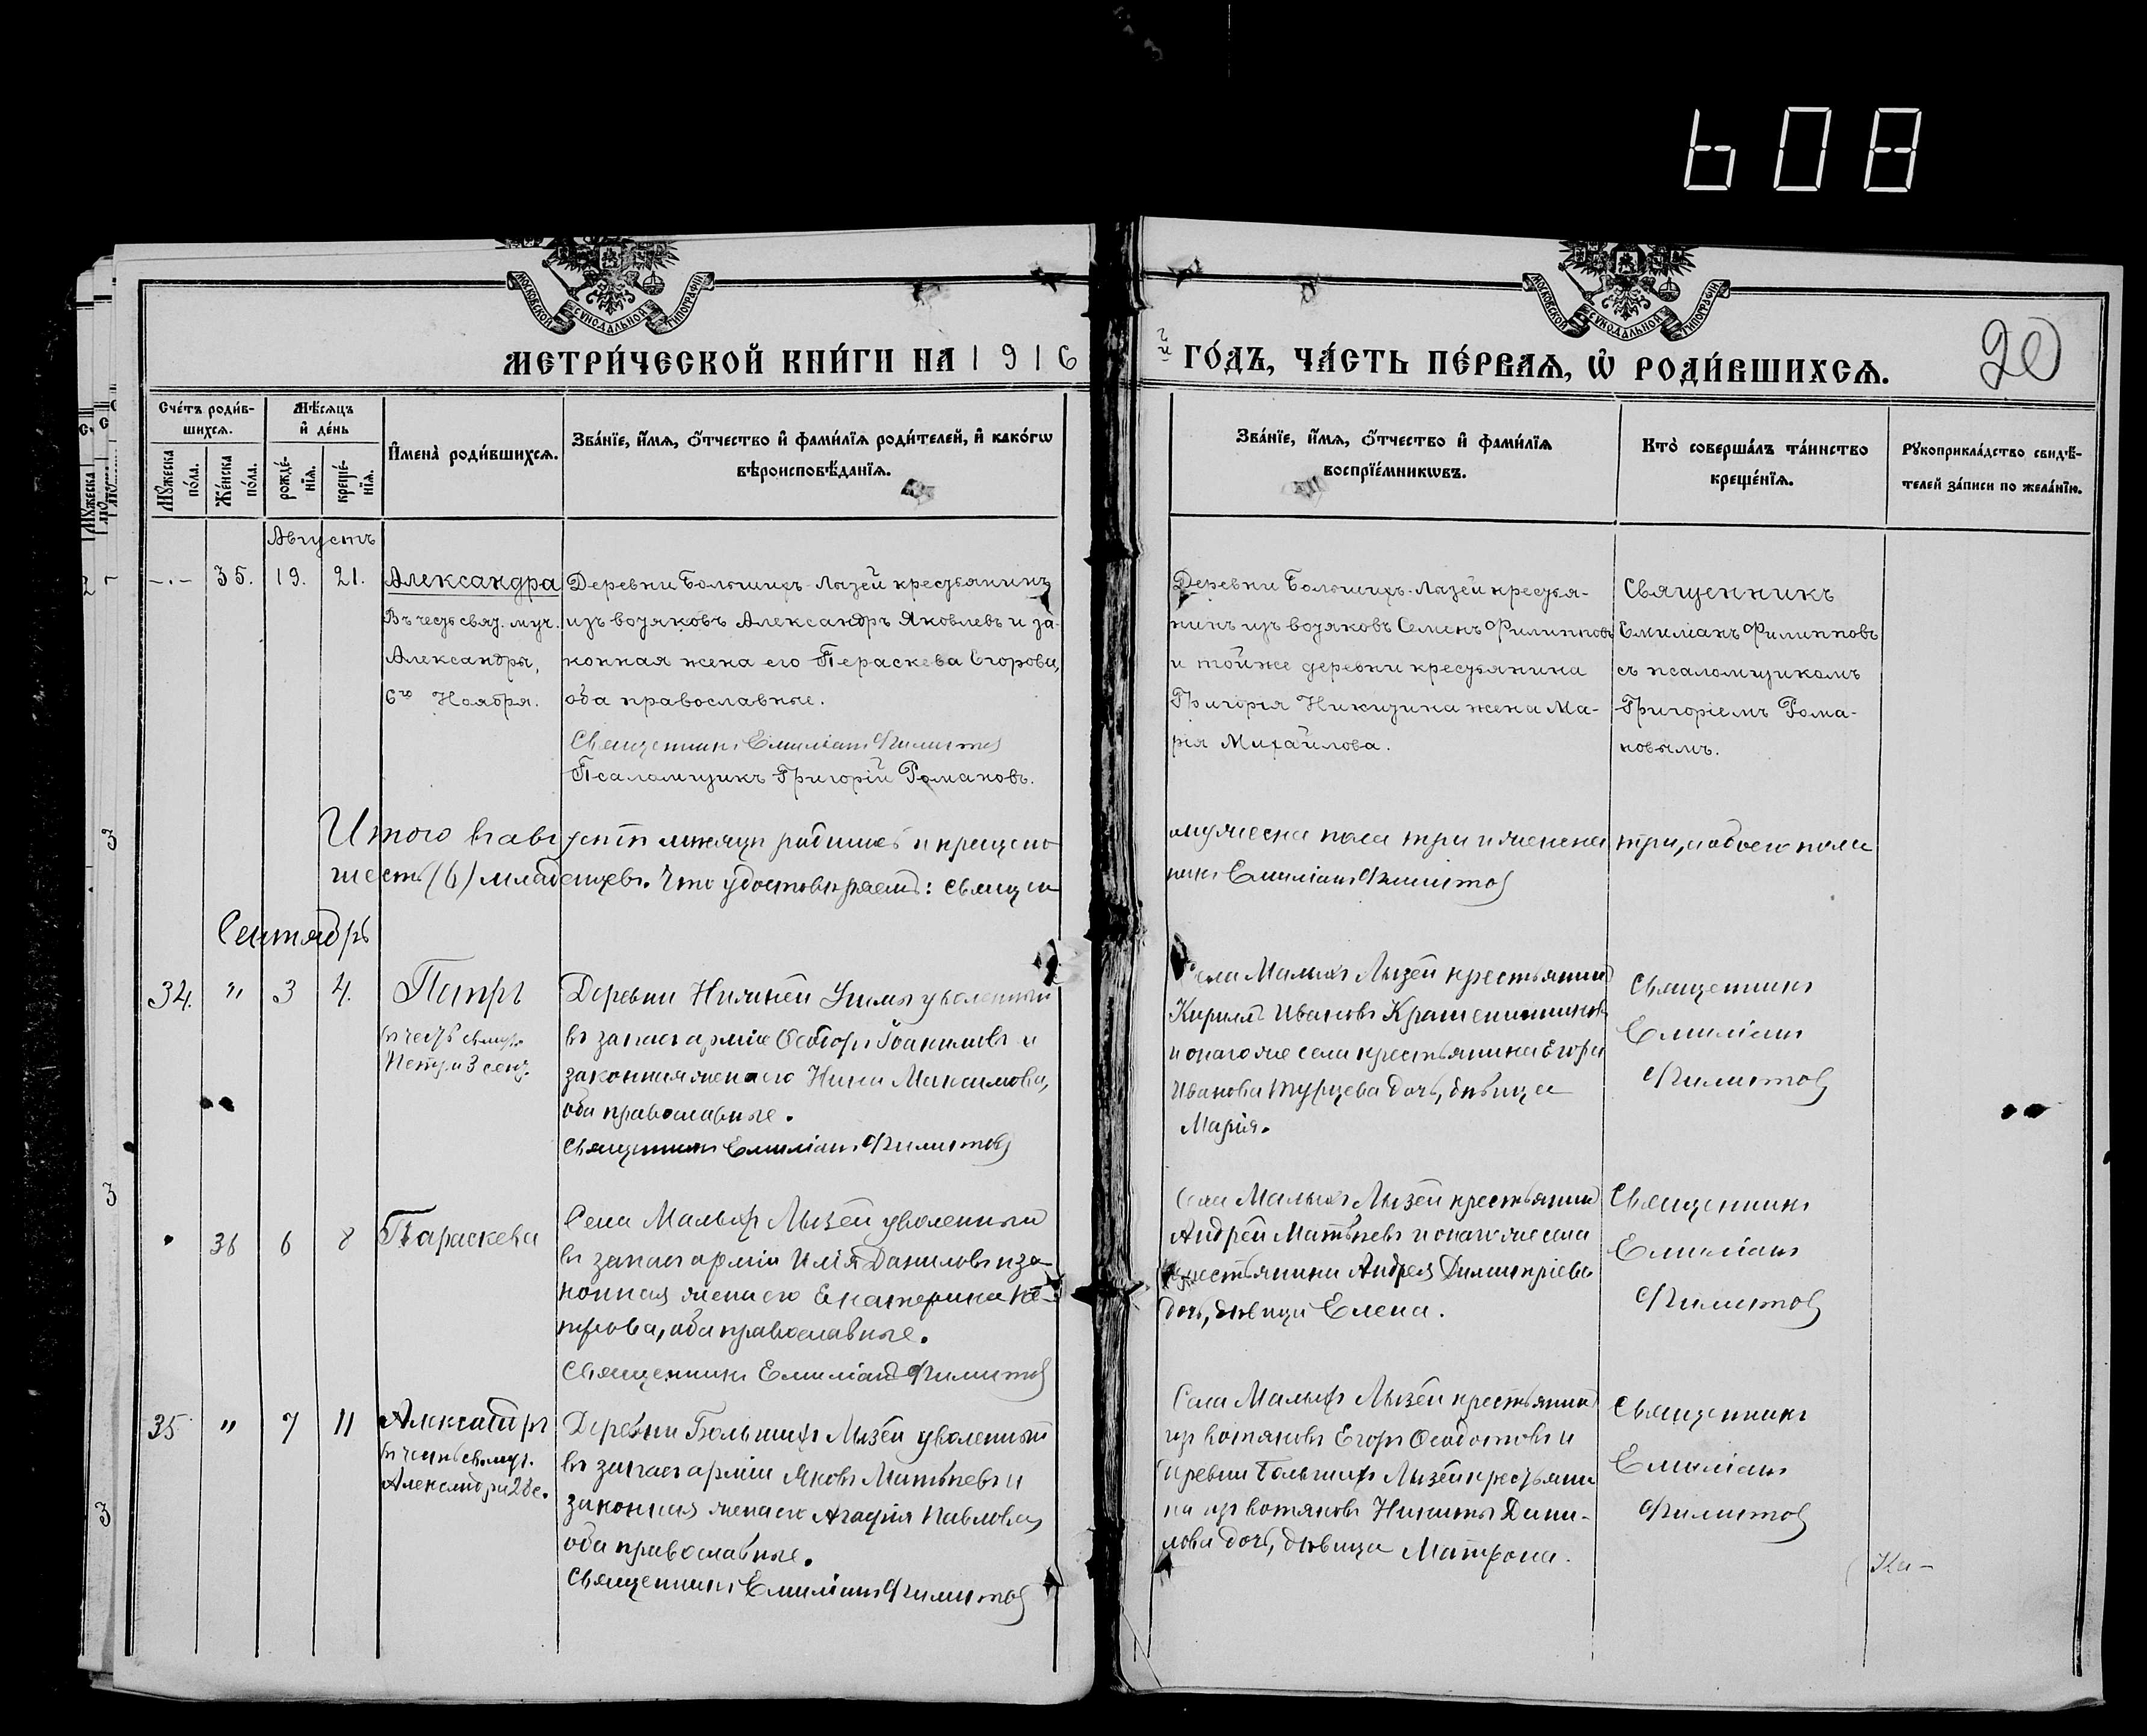 608
МОСКОВСКОЙ СѴНОДАЛЬНОЙ ТИПОГРАФІИ
МОСКОВСКОЙ СѴНОДАЛЬНОЙ ТИПОГРАФІИ
МЕТРИ́ЧЕСКОЙ КНИ́ГИ НА 1916
й ГО́ДЪ, ЧА́СТЬ ПЕ́РВАѦ, Ѡ҆ РОДИ́ВШИХСѦ.
20
Сче́тъ роди́в-
шихсѧ.
Мѣ́сѧцъ
и҆ де́нь
Мꙋ́жеска
по́ла.
Же́нска
по́ла.
рожде́-
нїѧ.
креще́-
нїѧ.
И҆мена̀ роди́вшихсѧ.
Зва́нїе, и҆́мѧ, о҆́тчество и҆ фами́лїѧ роди́телей, и҆ како́гѡ
вѣроисповѣ́данїѧ.
Зва́нїе, и҆́мѧ, о҆́тчество и҆ фами́лїѧ
воспрїе́мникѡвъ.
Кто̀ соверша́лъ та́инство
креще́нїѧ.
Рꙋкоприкла́дство свидѣ́-
телей за́писи по жела́нїю.
Августъ
-.- 35. 19. 21.
Александра
Въ честь свят. муч.
Александры,
6го Ноября.
Деревни Большихъ-Лызей крестьянинъ
изъ вотяковъ Александръ Яковлевъ и за-
конная жена его Параскева Егорова,
оба православные.
Священникъ Емиліанъ Филипповъ
Псаломщикъ Григорій Романовъ.
Деревни Большихъ-Лызей крестья-
нинъ изъ вотяковъ Семенъ Филипповъ
и тойже деревни крестьянина
Григорія Никитина жена Ма-
рія Михайлова.
Священникъ
Емиліанъ Филипповъ
съ псаломщикомъ
Григоріемъ Рома-
новымъ.
Итого въ августѣ мѣсяцѣ родилось и крещено
мужеска пола три и женска три, а обоего пола
шесть (6) младенцевъ. Что удостовѣряемъ: Священ
никъ Емиліанъ Филипповъ
Сентябрь
34. " 3 4.
Петръ
въ честь св. муч.
Петра 3 сент.
Деревни Нижней Уимы уволенный
въ запасъ арміи Ѳедоръ Іоакимовъ и
законная жена его Нина Максимова,
оба православные.
Священникъ Емиліанъ Филипповъ
Села Малыхъ Лызей крестьянинъ
Кириллъ Ивановъ Крашенинниковъ
и онаго же села крестьянина Егора
Иванова Турцева дочь, дѣвица
Марія.
Священникъ
Емиліанъ
Филипповъ
36 6 8
Параскева
Села Малыхъ Лызей уволенный
въ запасъ арміи Илія Даниловъ и за-
конная жена его Екатерина Пе-
трова, оба православные.
Священникъ Емиліанъ Филипповъ
Села Малыхъ Лызей крестьянинъ
Андрей Матвѣевъ и онаго же села
крестьянина Андрея Димитріева
дочь, дѣвица Елена.
Священникъ
Емиліанъ
Филипповъ
35 " 7 11
Александръ
въ честь св. муч.
Деревни Большихъ Лызей уволенный
въ запасъ арміи Яковъ Матвѣевъ и
законная жена его Агафія Павлова,
оба православные.
Священникъ Емиліанъ Филипповъ
Села Малыхъ Лызей крестьянинъ
изъ вотяковъ Егоръ Ѳедотовъ и
деревни Большихъ Лызей крестьяни
на изъ вотяковъ Никиты Дани-
лова дочь, дѣвица Матрона.
Священникъ
Емиліанъ
Филипповъ
Ка-